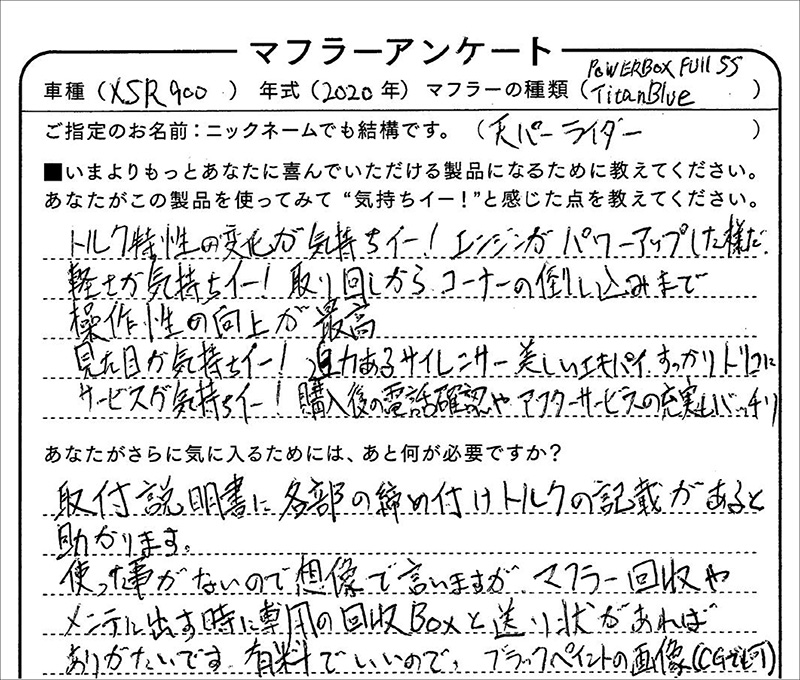 マフラーアンケート
車種（XSR900） 年式（2020年） マフラーの種類（POWERBOX FULL SS TitanBlue）
ご指定のお名前：ニックネームでも結構です。（天パーライダー）
■いまよりもっとあなたに喜んでいただける製品になるために教えてください。
あなたがこの製品を使ってみて“気持ちイー！”と感じた点を教えてください。
トルク特性の変化が気持ちイー！エンジンがパワーアップした様だ。
軽さが気持ちイー！取り回しからコーナーの倒し込みまで
操作性の向上が最高
見た目が気持ちイー！迫力あるサイレンサー美しいエキパイ すっかりトリコに
サービスが気持ちイー！購入後の電話確認やアフターサービスの充実もバッチリ
あなたがさらに気に入るためには、あと何が必要ですか？
取付説明書に各部の締め付けトルクの記載があると
助かります。
使った事がないので想像で言いますが、マフラー回収や
メンテに出す時に専用の回収Boxと送り状があれば
ありがたいです。有料でいいので、ブラックペイントの画像（CGでも可）